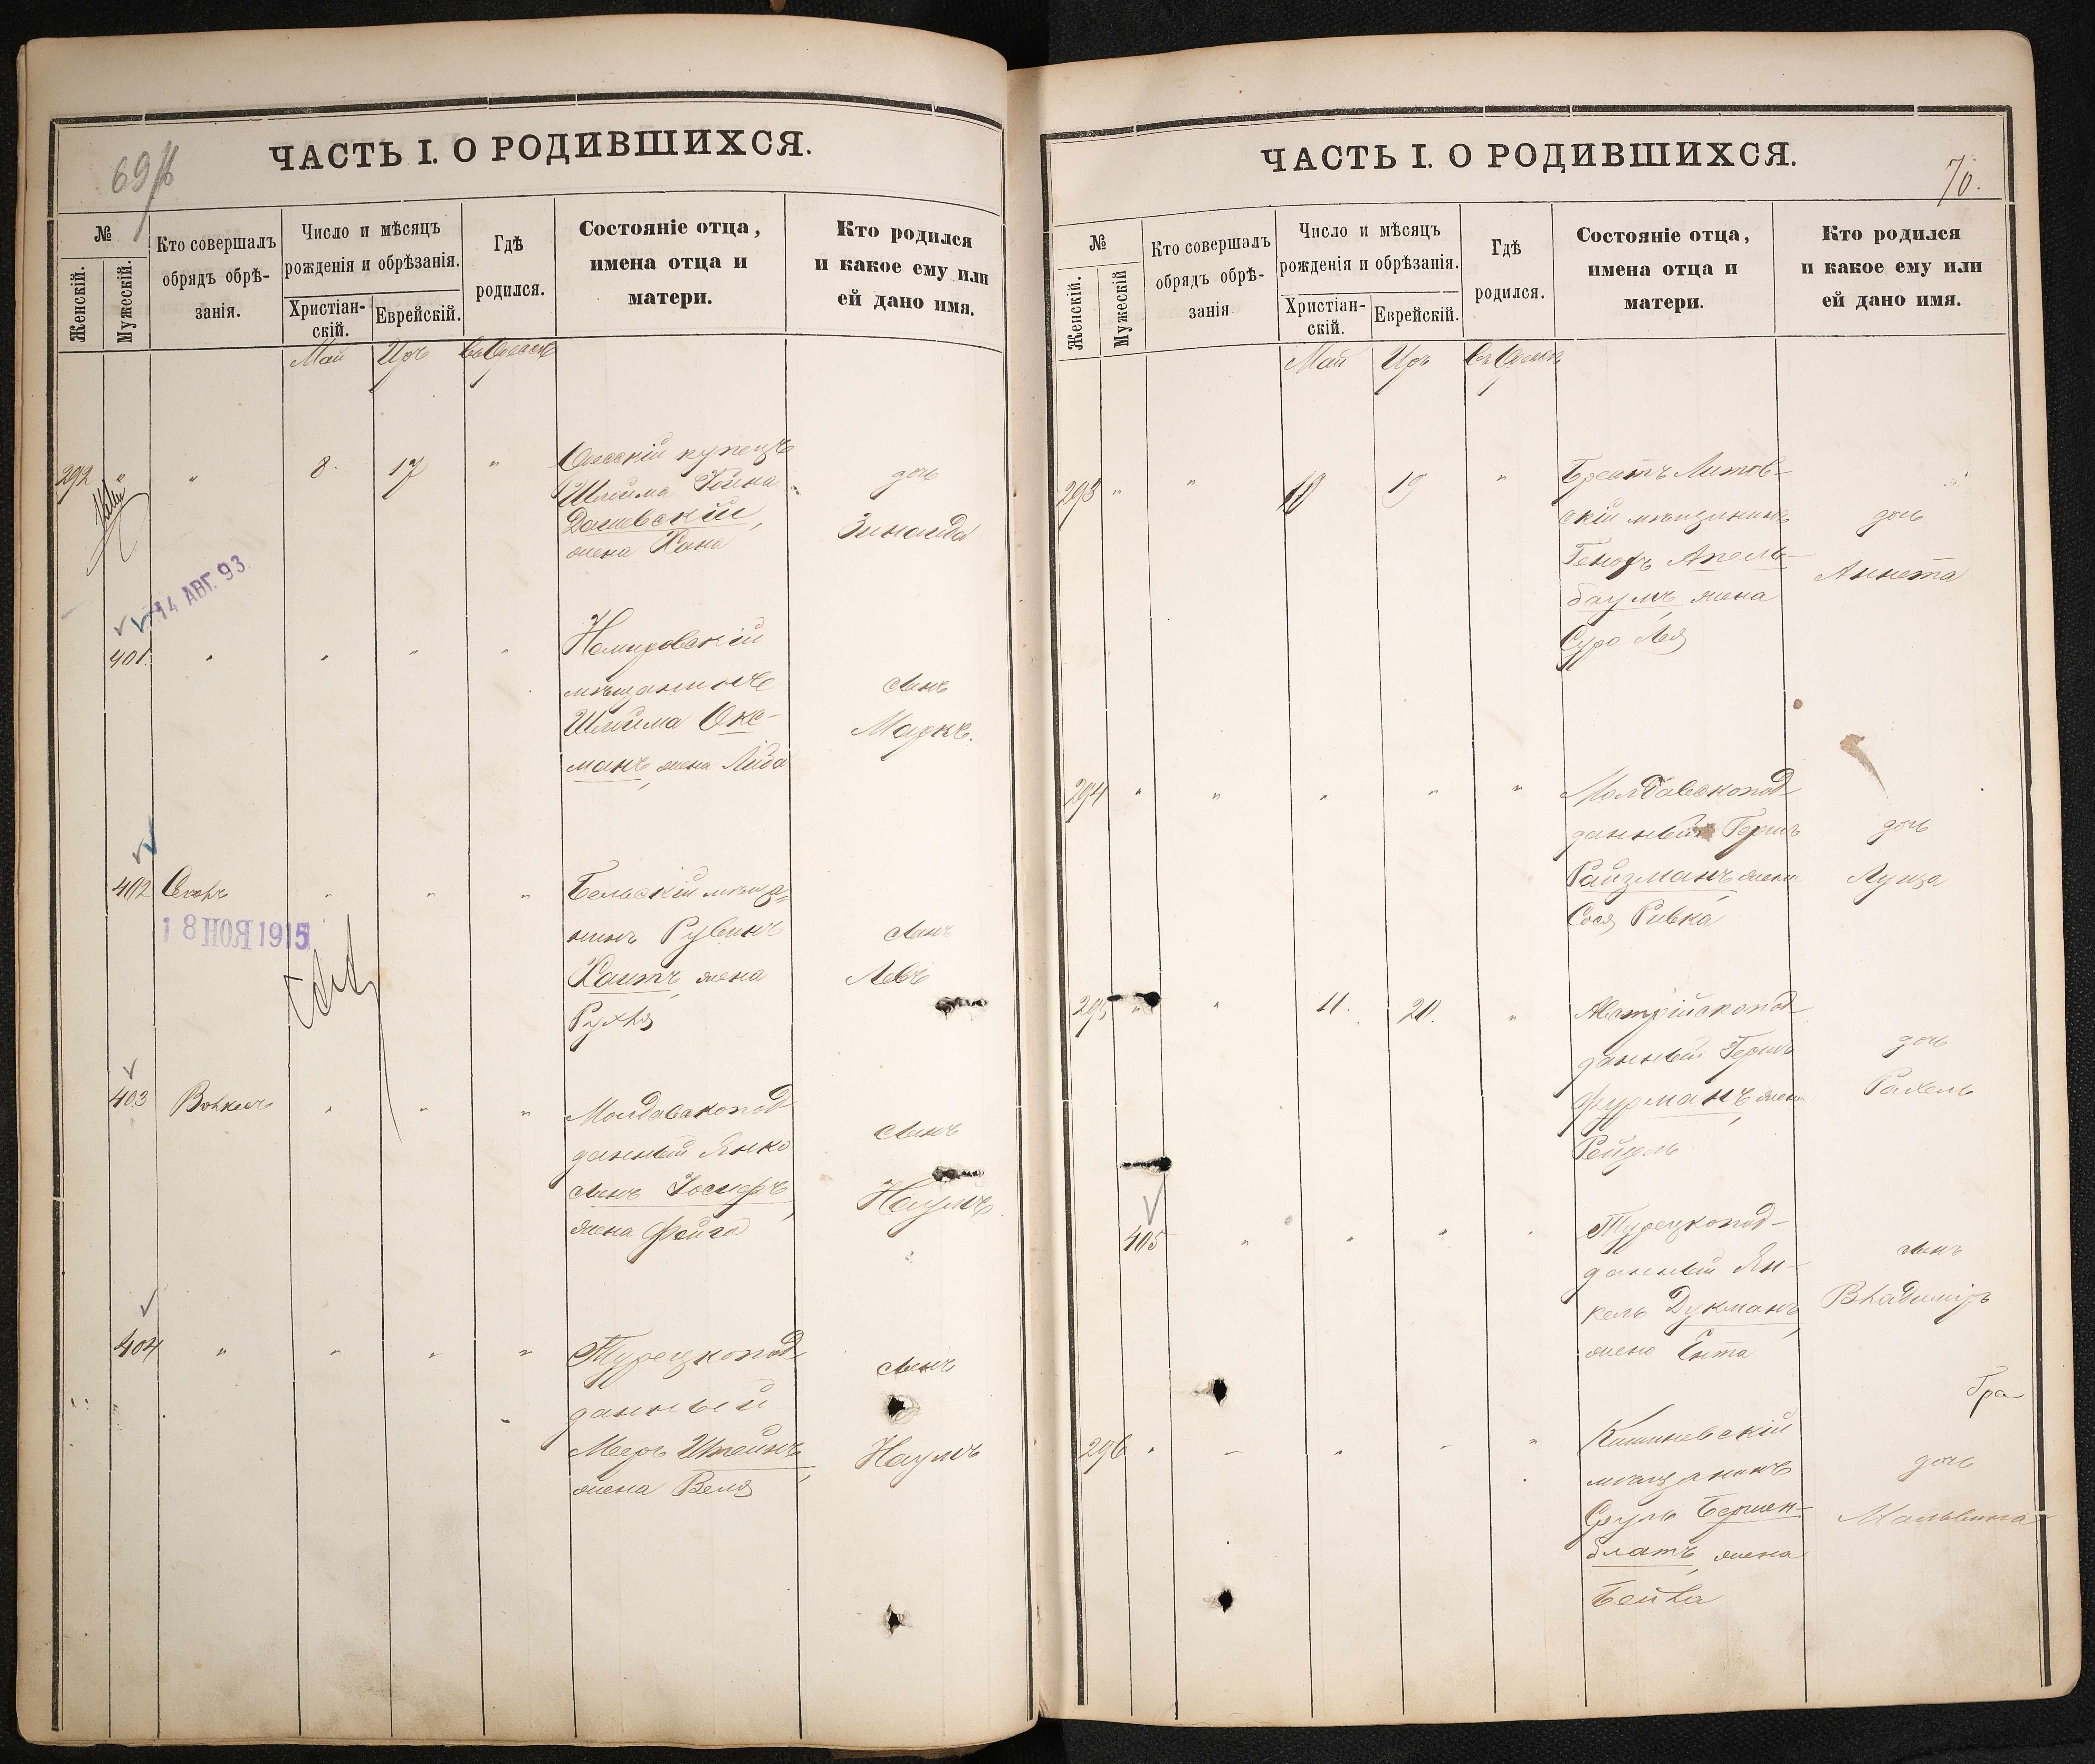 69/б
ЧАСТЬ I. О РОДИВШИХСЯ.
№
Женскій.
Мужескій.
Кто совершалъ
обрядъ обрѣ-
занія.
Число и мѣсяцъ
рожденія и обрѣзанія.
Христіан-
скій.
Еврейскій.
Гдѣ
родился.
Состояніе отца,
имена отца и
матери.
Кто родился
и какое ему или
ей дано имя.
Май Іяръ въ Одессѣ
292 " " 8. 17 "
Одесскій купецъ
Шлойма Іойна
Дашевскій,
жена Хана
дочь
Зинаида
14 АВГ. 93
401 " " " "
Немировскій
мѣщанинъ
Шлойма Окс-
манъ, жена Лида
сынъ
Маркъ.
402 " " "
Бельскій мѣща-
нинъ Рувинъ
Хаитъ, жена
Рухля
сынъ
Левъ
18 НОЯ 1915
403 " " "
Молдавскопод
данный Янко
сынъ Іосифъ,
жена Фейга
сынъ
Наумъ
404 " " " "
Турецкопод
данный
Мееръ Штейнъ,
жена Веля
сынъ
Наумъ
ЧАСТЬ I. О РОДИВШИХСЯ.
70.
№
Женскій.
Мужескій
Кто совершалъ
обрядъ обрѣ-
занія
Число и мѣсяцъ
рожденія и обрѣзанія.
Христіан-
скій.
Еврейскій.
Гдѣ
родился.
Состояніе отца,
имена отца и
матери.
Кто родился
и какое ему или
ей дано имя.
Май Іяръ въ Одессѣ
293 " " 10 19 "
Брестъ Литов-
скій мѣщанинъ
Генохъ Апель-
баумъ, жена
Сура Лея
дочь
Аннета
294 " " " " "
Молдавскопод
данный Гершъ
Райзманъ, жена
Сося Ривка
дочь
Луиза
295 " " 11. 20. "
Австрійскопод
данный Гершъ
Фурманъ, жена
Рейзль
дочь
Рахель
405 " " " "
Турецкопод-
данный Ян-
кель Дукманъ,
жена Ента
сынъ
Владиміръ
Гра
296 " " " " "
Кишиневскій
мѣщанинъ
Сруль Бершен-
блатъ, жена
Бейла
дочь
Мальвина